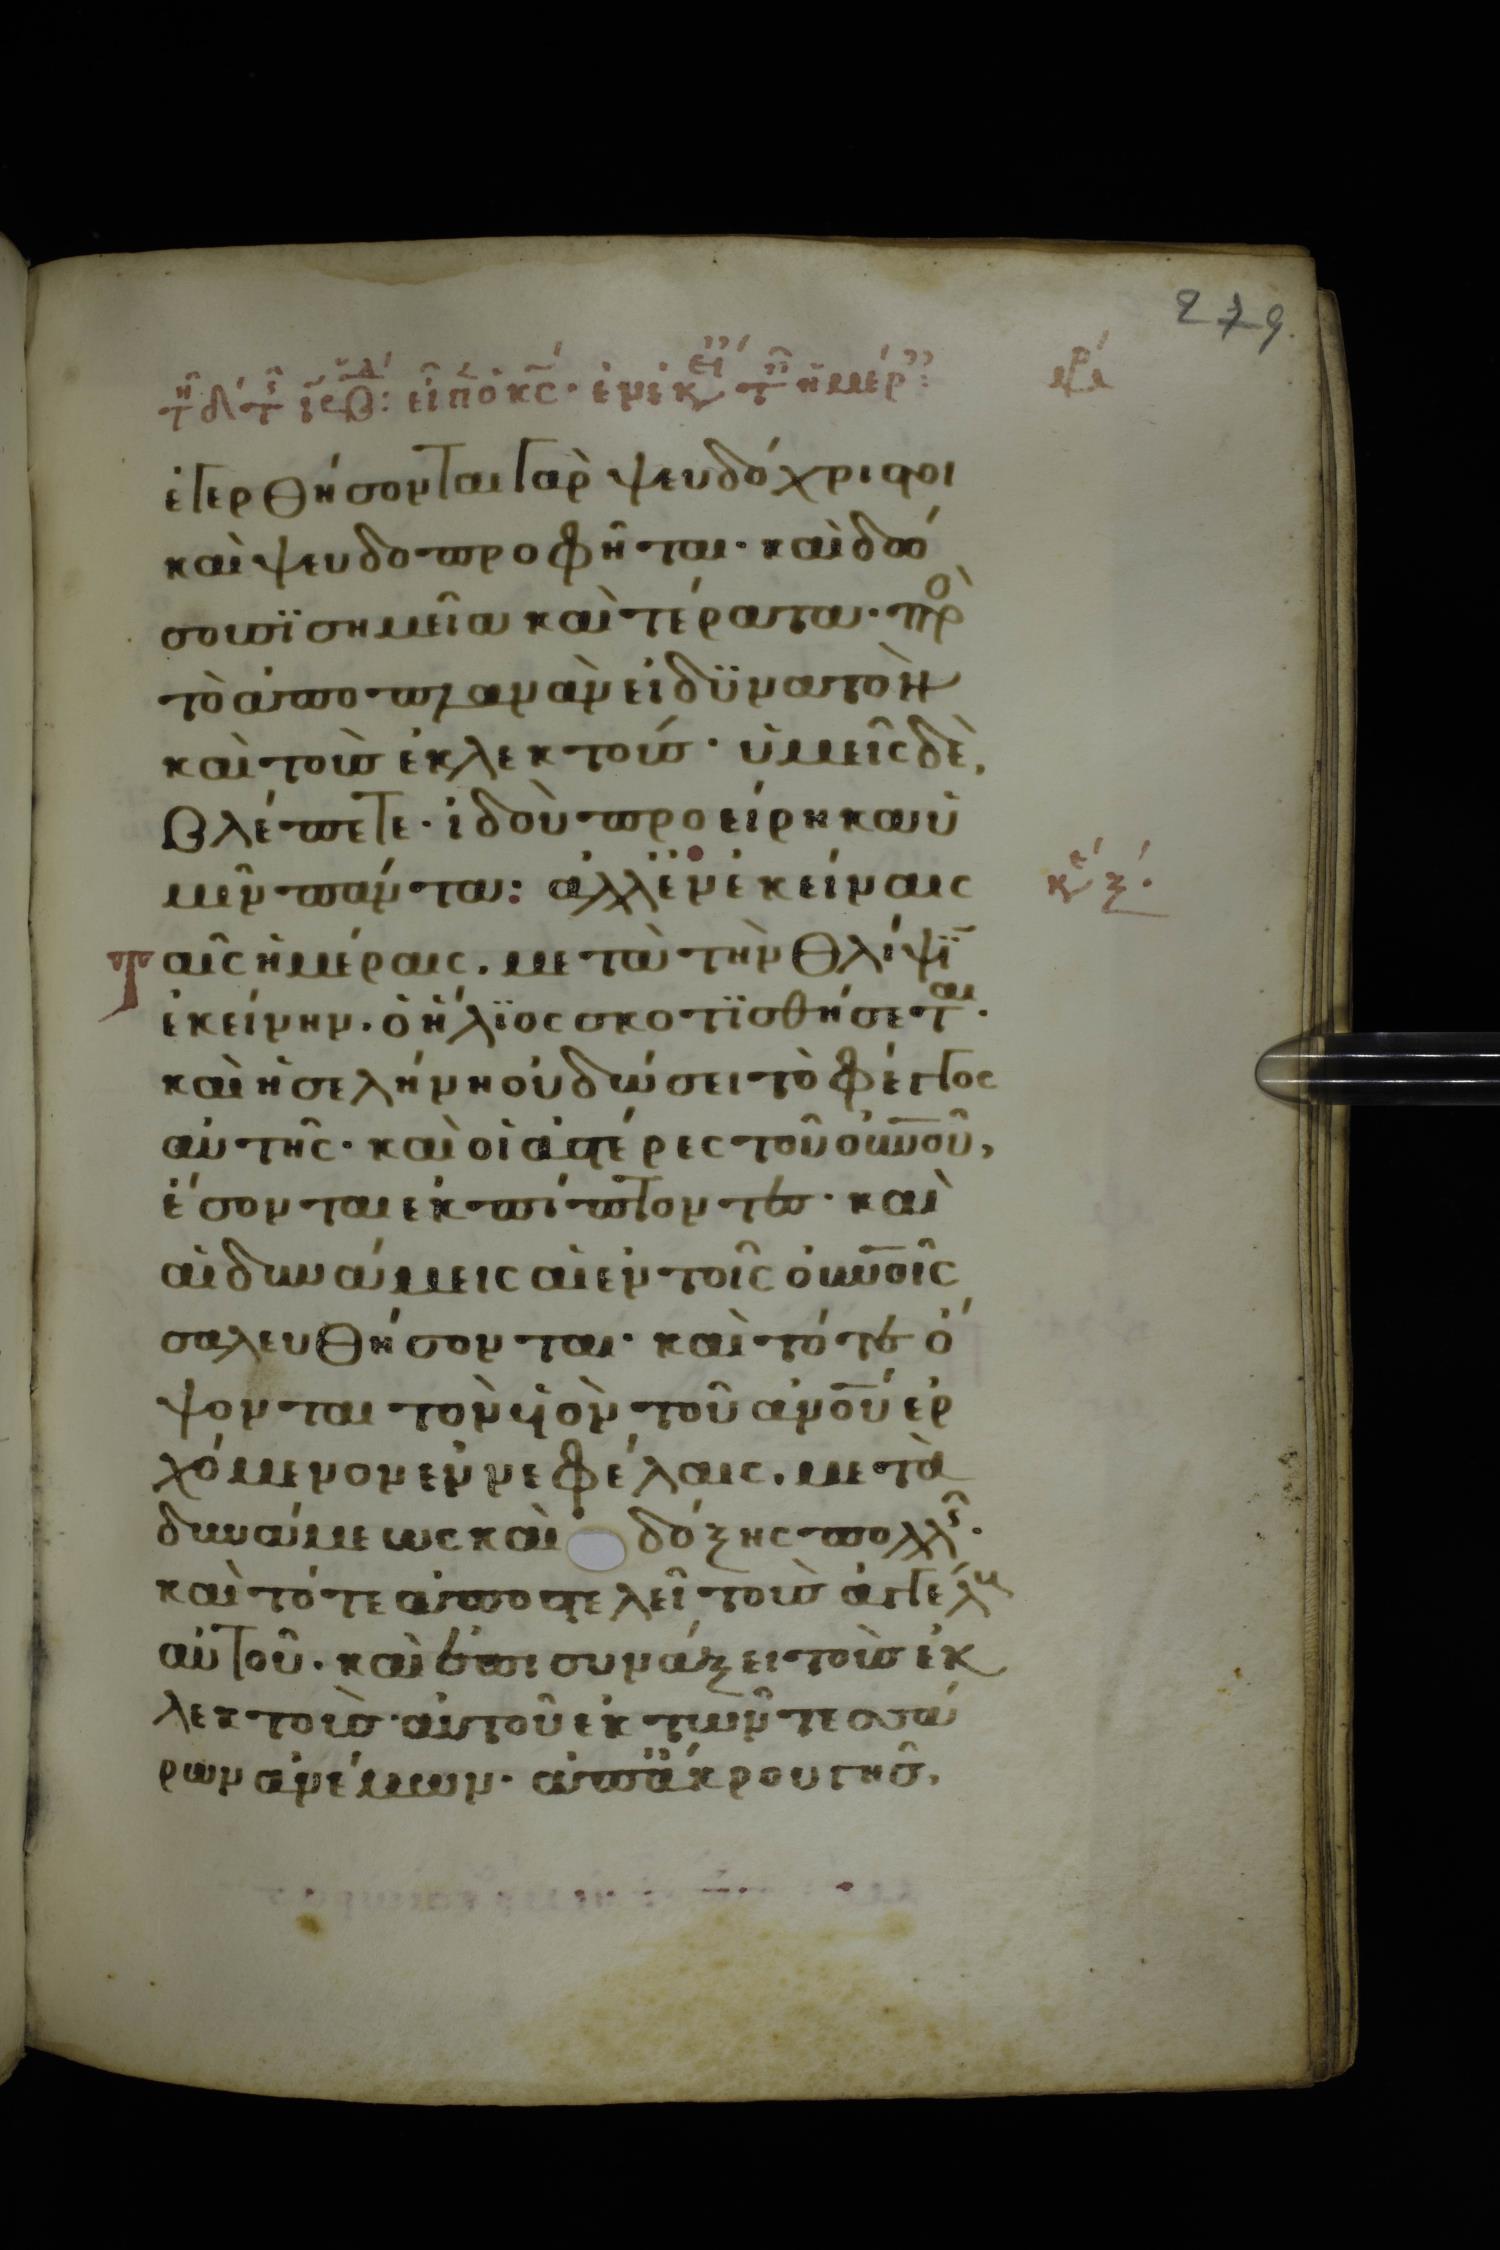 279.
ἐγερθήσονται γὰρ ψευδόχριστοι
καὶ ψευδοπροφῆται· καὶ δώ
σουσϊ σημεῖα καὶ τέρατα· πρὸ
τὸ ἀποπλανᾶν εἰ δϋνατὸν
καὶ τοὺς ἐκλεκτούς· ὑμεῖς δὲ,
βλέπετε· ἰδοὺ προείρηκα ὑ
μῖν πάντα: ἀλλ᾽ ἐν ἐκείναις
Ταῖς ἡμέραις. μετὰ τὴν θλίψϊ̄
ἐκείνην. ὁ ἥλϊος σκοτϊσθήσεται·
καὶ ἡ σελήνη οὐ δώσει τὸ φέγγος
αὐτῆς· καὶ οἱ ἀστέρες τοῦ οὐνοῦ,
ἔσονται ἐκπίπτοντες· καὶ
αἱ δυνάμεις αἱ ἐν τοῖς οὐνοῖς
σαλευθήσονται· καὶ τότε ὄ
ψονται τὸν υἱὸν τοῦ ἀνοῦ ἐρ
χόμενον ἐν νεφέλαις. μετὰ
δυνάμεως καὶ δόξης πολλῆς·
καὶ τότε ἀποστελεῖ τοὺς ἀγγέλους
αὐτοῦ. καὶ ἐπισυνάξει τοὺς ἐκ
λεκτοὺς αὐτοῦ ἐκ τῶν τεσσά
ρων ἀνέμων· ἀπ᾽ ἄκρου γῆς,